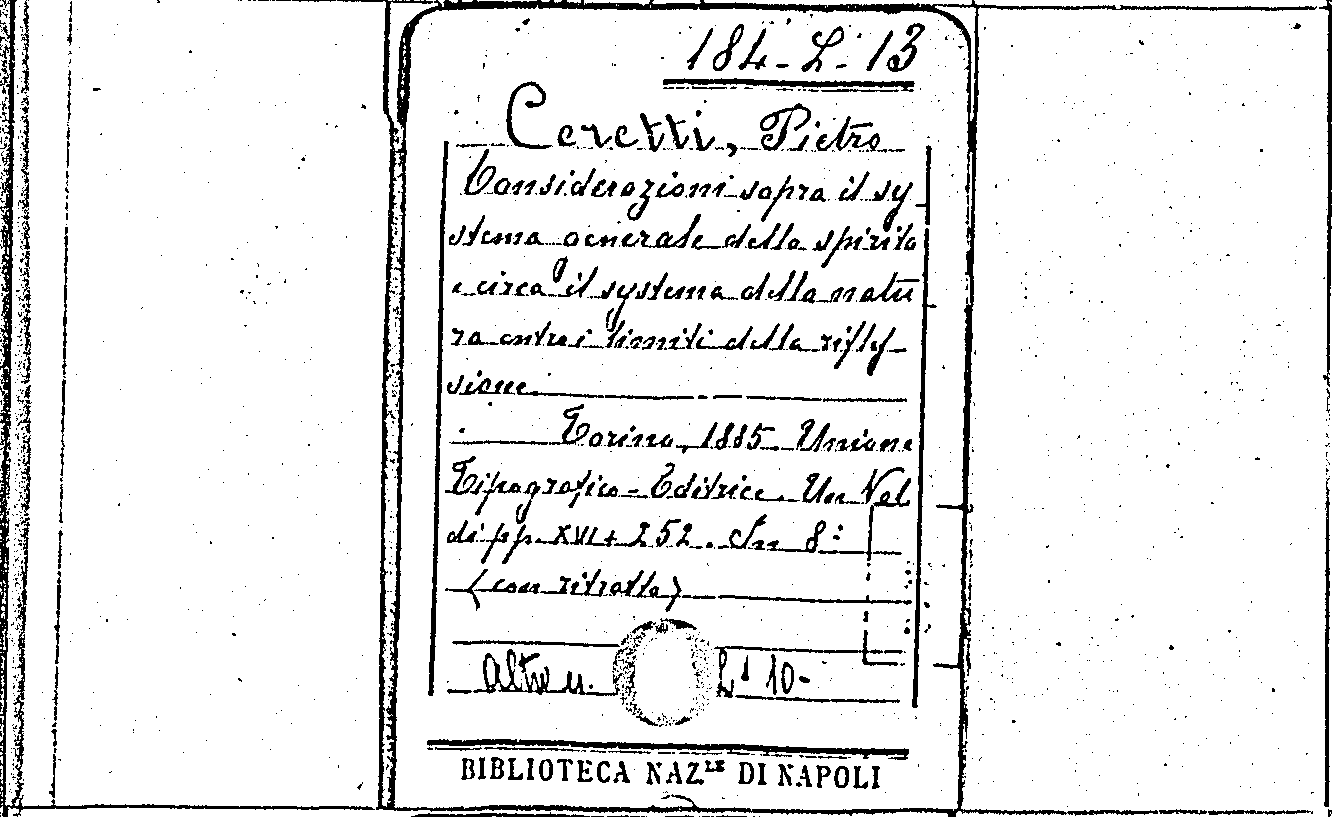 184-L-13
Ceretti, Pietro
Considerazioni sopra il sy
stema generale dello spirito
e circa il systema della natu
ra entro i limiti della rifles-
sione.
Torino, 1885. Unione
Tipografico-Editrice. Un Vol.
di pp. XVI+252. In 8:
(con ritratto)
Altro u. 10-
BIBLIOTECA NAZ.LE DI NAPOLI